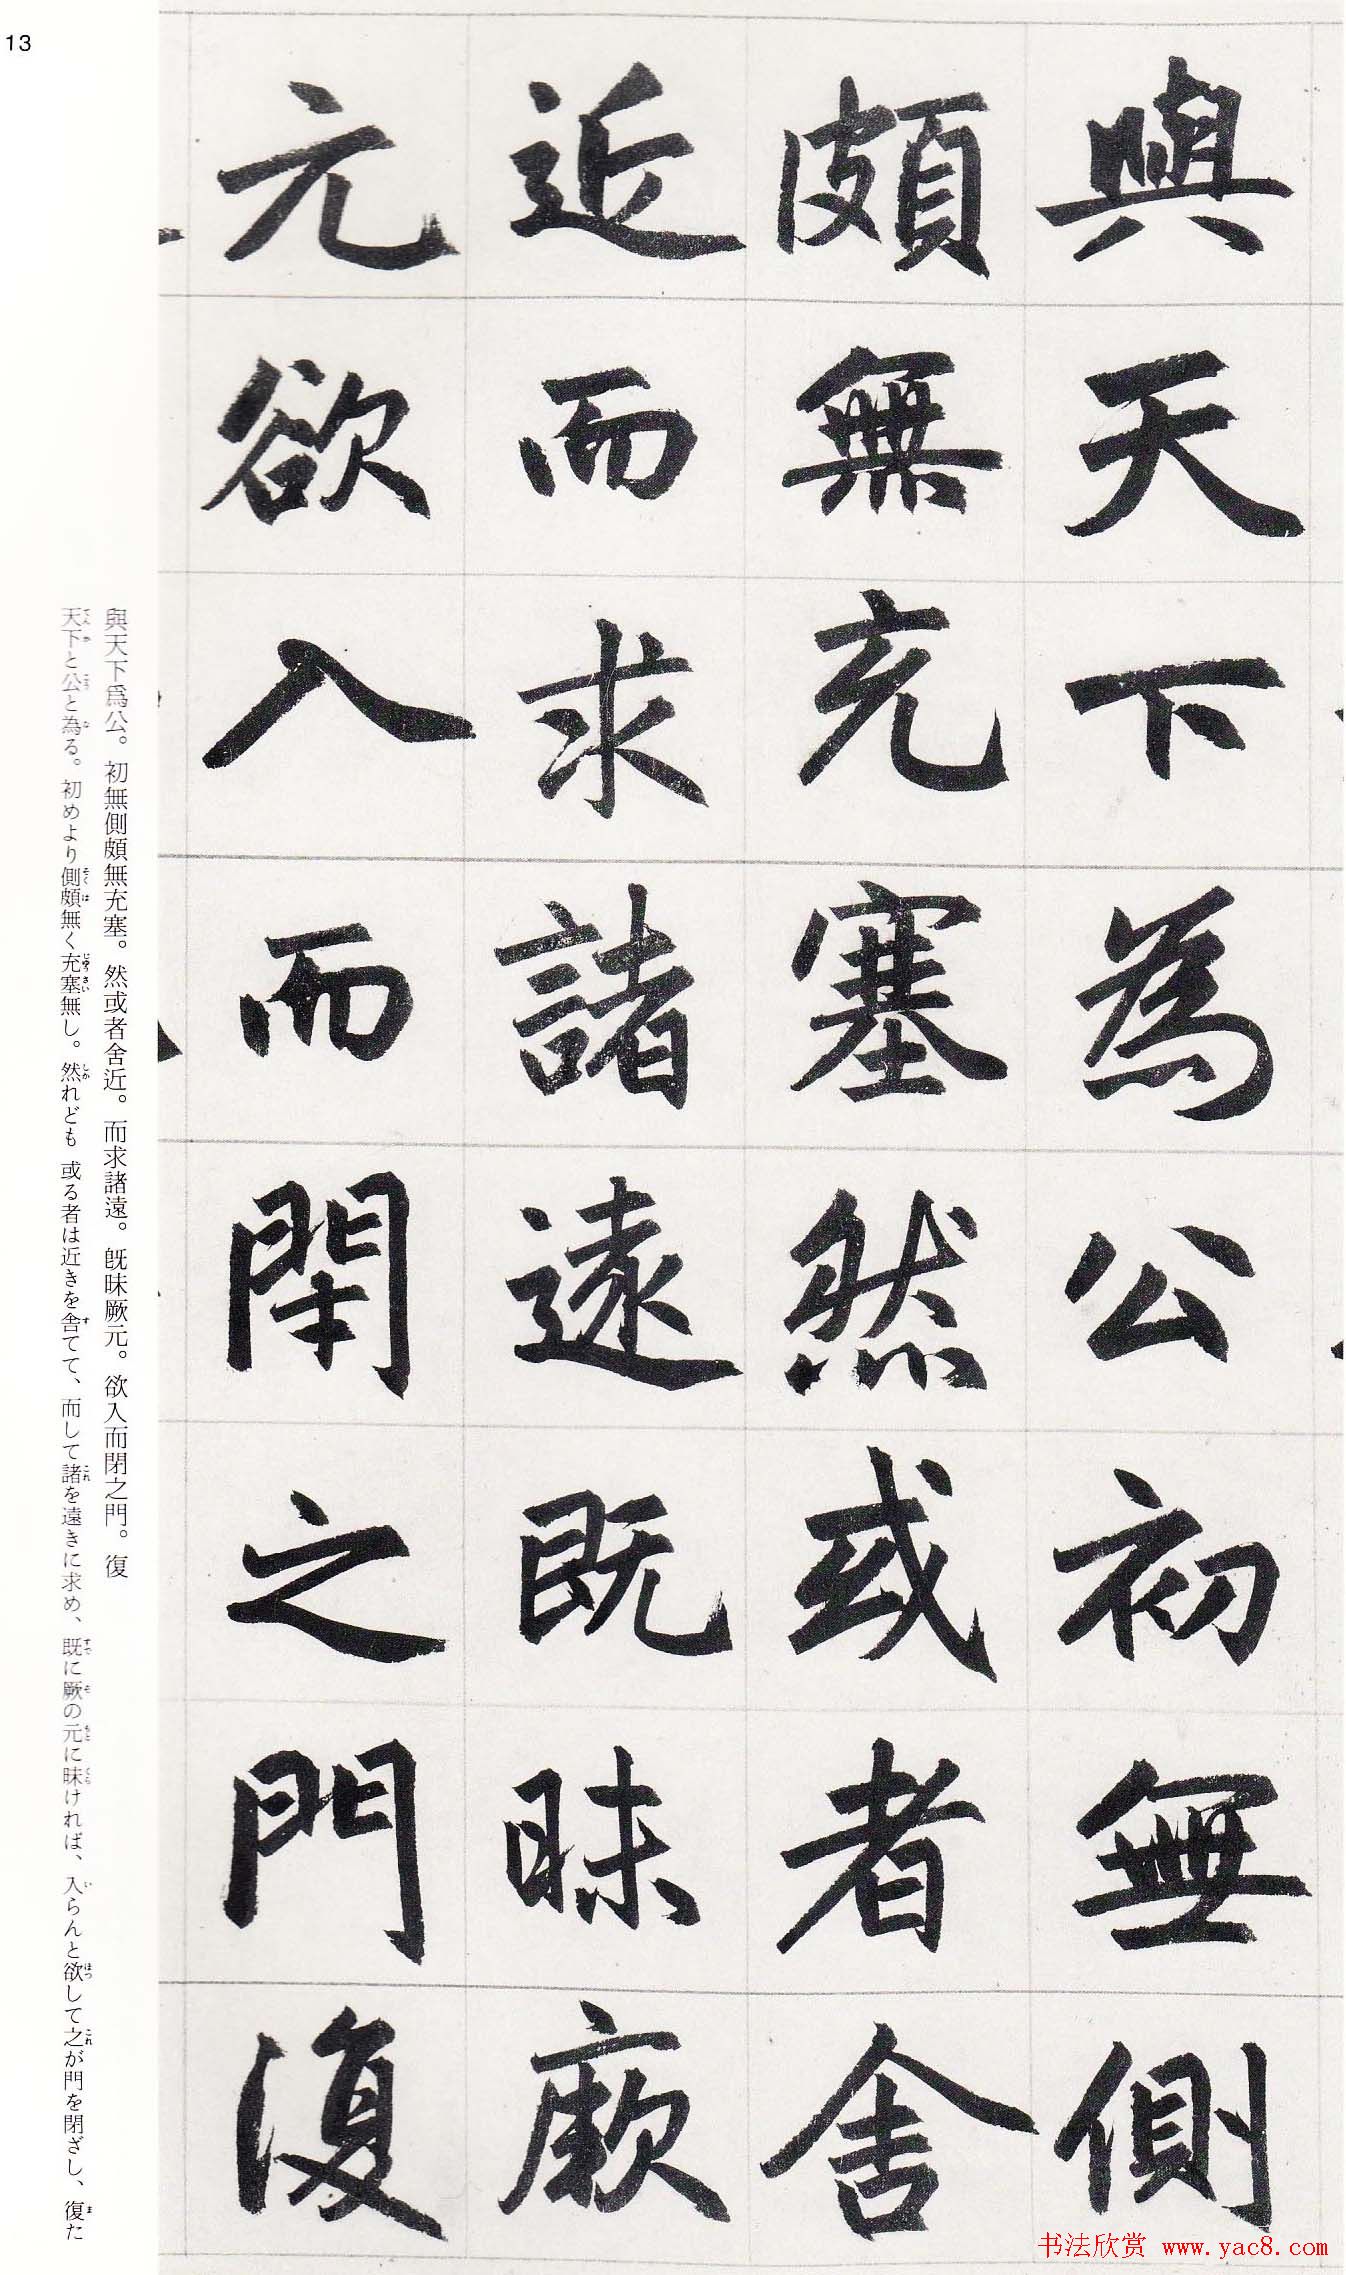 與天下為公初無側
頗無充塞然或者舍
近而求諸遠既昧厥
元欲入而閇之門復
與天下爲公。初無側頗無充塞。然或者舍近。而求諸遠。既昧厥元。欲入而閉之門。復
天下と公と為る。初めより側頗無く充塞無し。然れども或る者は近きを舍てて、而して諸を遠きに求め、既に厥の元に昧ければ、入らんと欲して之が門を閉ざし、復た
13
书法欣赏 www.yac8.com